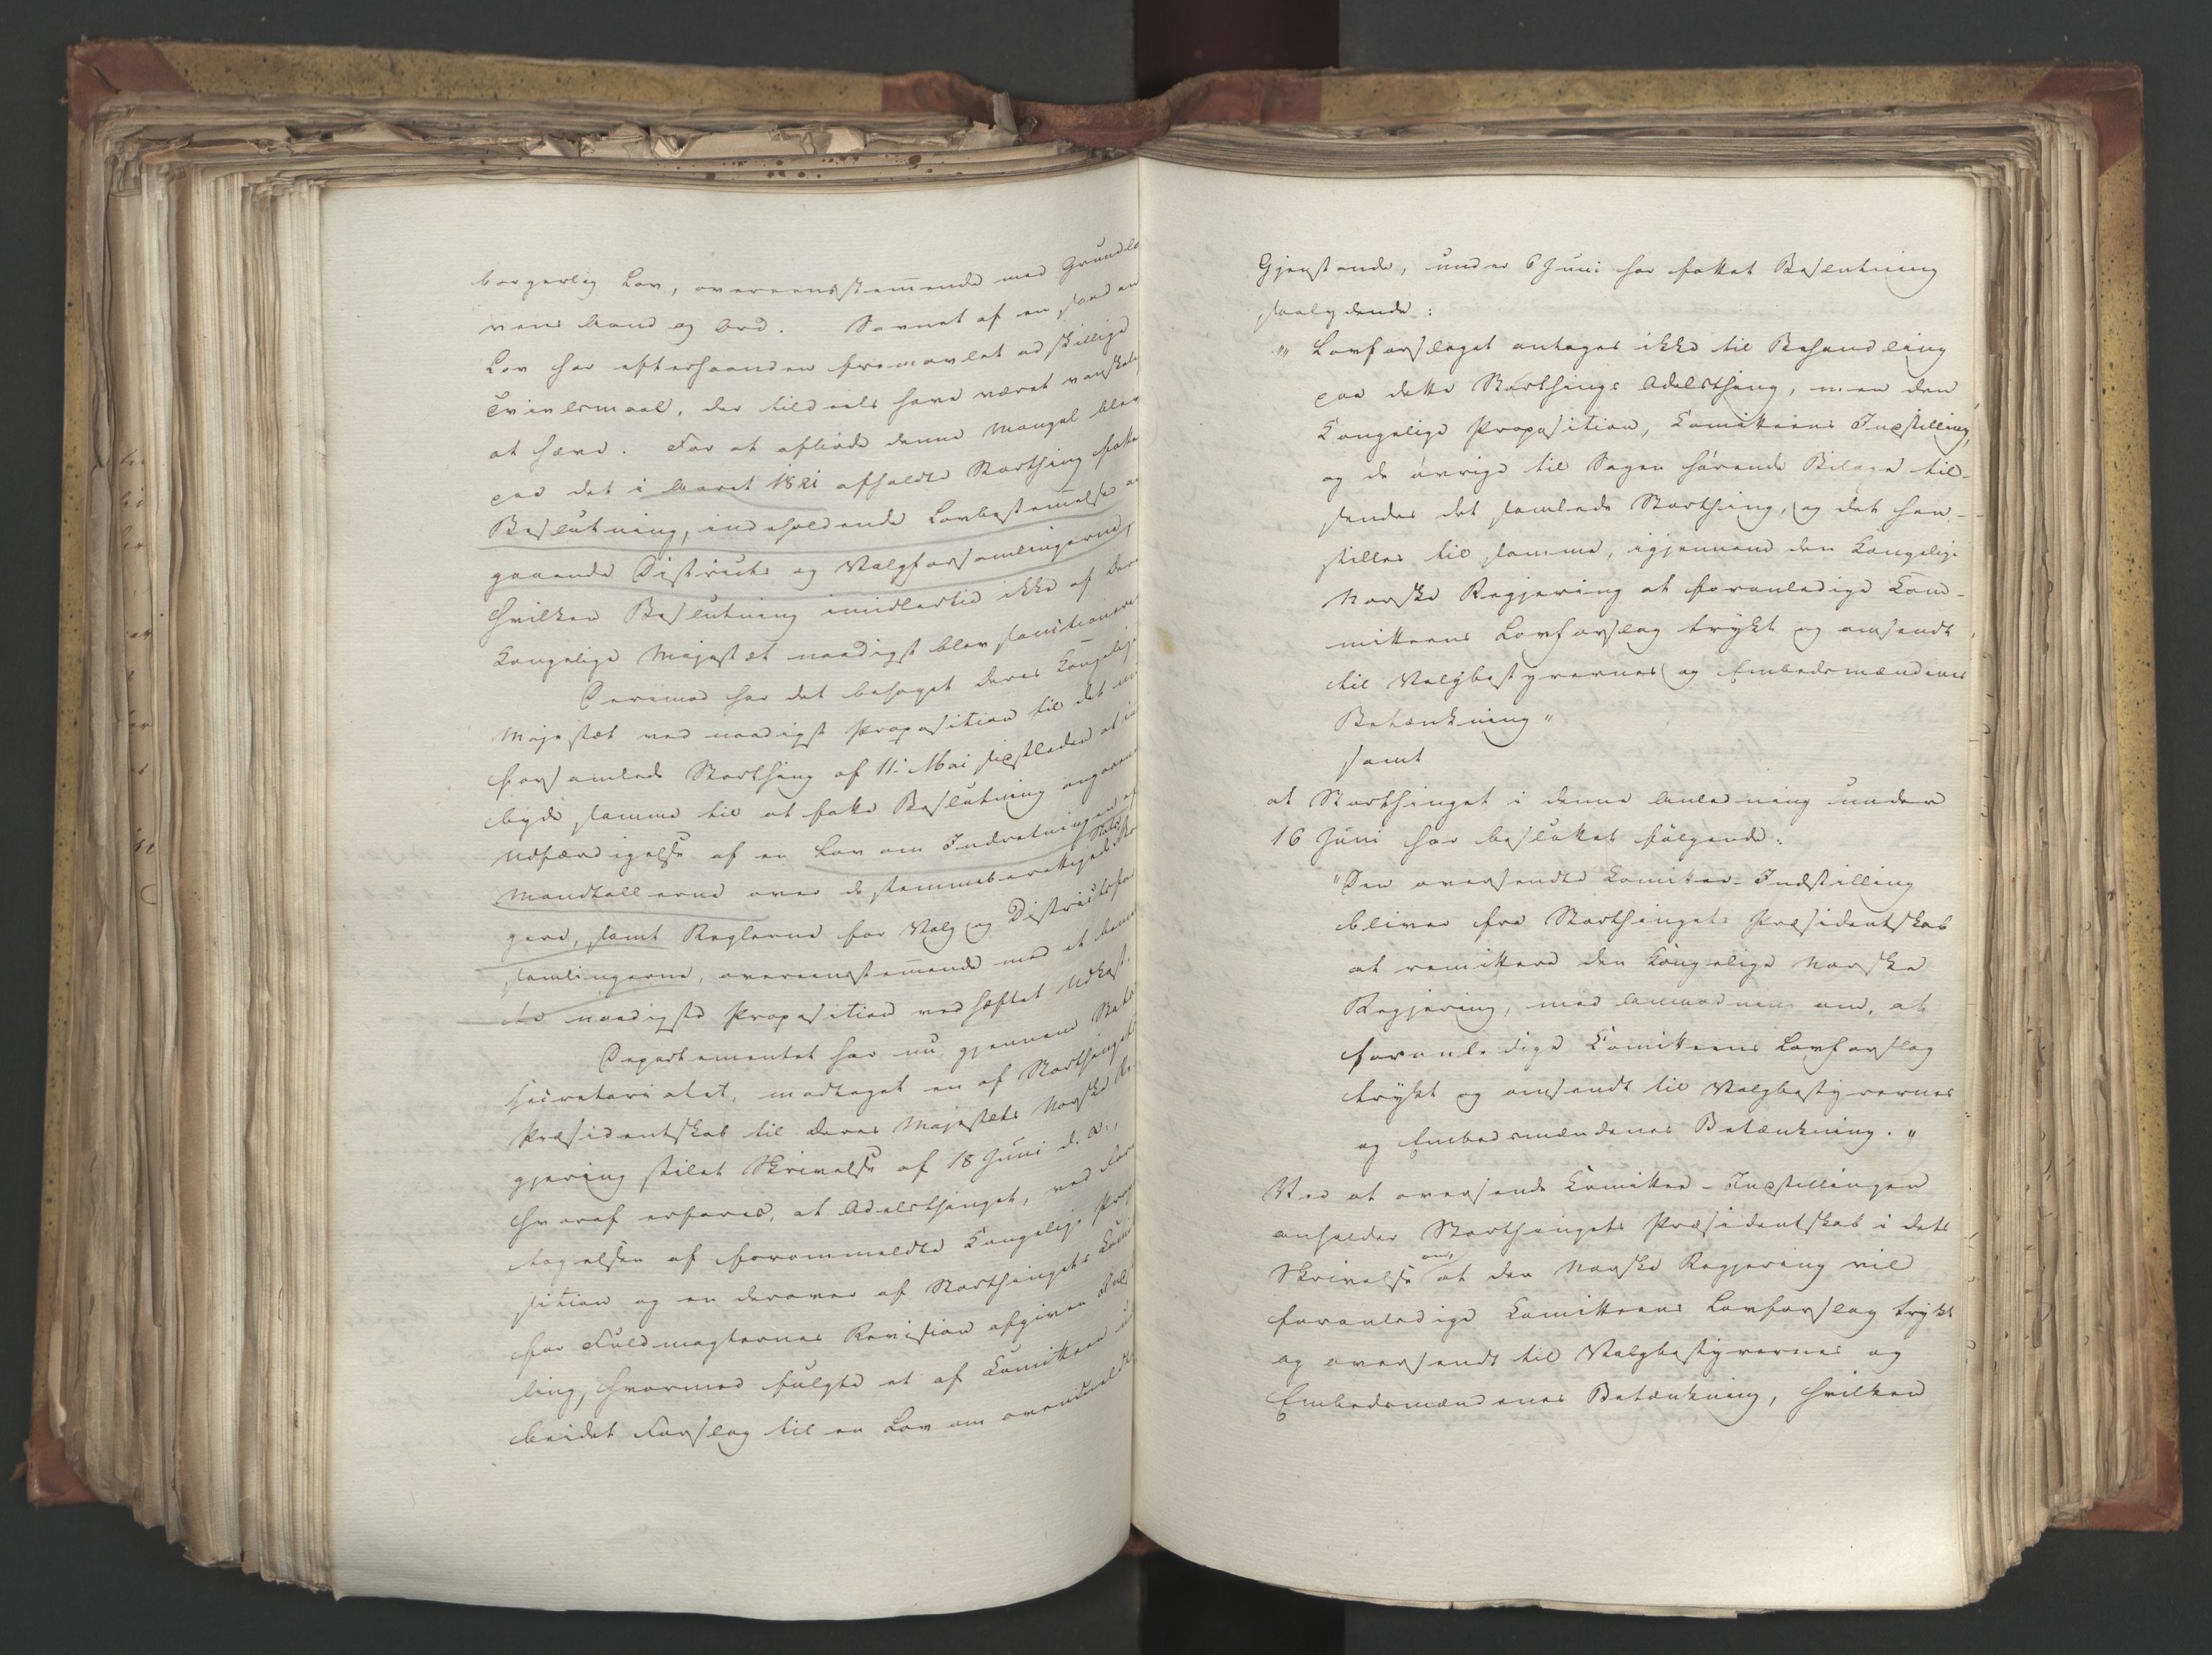 borgerlig Lov, overeensstem̅ende med Grundlo
vens Aand og Ord. Savnet af en saadan
Lov har efterhaanden fremavlet adskillige
Tvivlsmaal, der tildeels have været vanskelig
at hæve. For at afbøde denne Mangel blev
paa det i Aaret 1821 afholdte Storthing fatte
Beslutning, indeholdende Lovbestem̅elser an
gaaende Districts og Valgforsamlingerne,
hvilken Beslutning imidlertid ikke af Dere
Kongelige Majestæt naadigst blev sanctioneret
Derimod har det behaget Deres Kongelige
Majestæt ved naadigst Proposition til det nu
forsamlede Storthing af 11 Mai sidstleden at ind
byde samme til at fatte Beslutning angaaende
Udfærdigelse af en Lov om Indretningen af
Mandtallerne over de stemmeberettigede Stats Bor
gere, samt Reglerne for Valg og Districtsfor
samlingerne, overeensstem̅ende med et bem
te naadigste Proposition vedhæftet Udkast.
Departementet har nu, gjennem Stats
Secretariatet, modtaget en af Storthingets
Præsidentskab til Deres Majestæts Norske Re
gjering stilet Skrivelse af 18 Juni d. A.,
hvoraf erfares, at Odelsthinget, ved For
tagelsen af forommeldte Kongelige Propo
sition og en derover af Storthingets Comit
for Fuldmagternes Revision afgiven Indstil
ling, hvormed fulgte et af Comitteen ud
beidet Forslag til en Lov om ovenmeldte
Gjenstande, under 6 Juni har fattet Beslutning
saalydende:
"" Lovforslaget antages ikke til Behandling
paa dette Storthings Odelsthing, men den
Kongelige Proposition, Comitteens Indstilling,
og de øvrige til Sagen hørende Bilage til-
sendes det samlede Storthing, og det hen-
stilles til samme, igjennem den Kongelige
Norske Regjering at foranledige Com-
mitteens Lovforslag trykt og omsendt
til Valgbestyrernes og Embedsmændenes
Betænkning"
samt
at Storthinget i denne Anledning under
16 Juni har besluttet følgende:
"Den oversendte Comitee-Indstilling
bliver fra Storthingets Præsidentskab
at remittere den Kongelige Norske
Regjering, med Anmodning om, at
foranledige Comitteens Lovforslag
trykt og omsendt til Valgbestyrernes
og Embedsmændenes Betænkning."
Ved at oversende Comittee-Indstillingen
anholder Storthingets Præsidentskab i dets
Skrivelse om at den Norske Regjering vil
foranledige Comitteens Lovforslag trykt
og oversendt til Valgbestyrernes og
Embedsmændenes Betænkning, hvilken